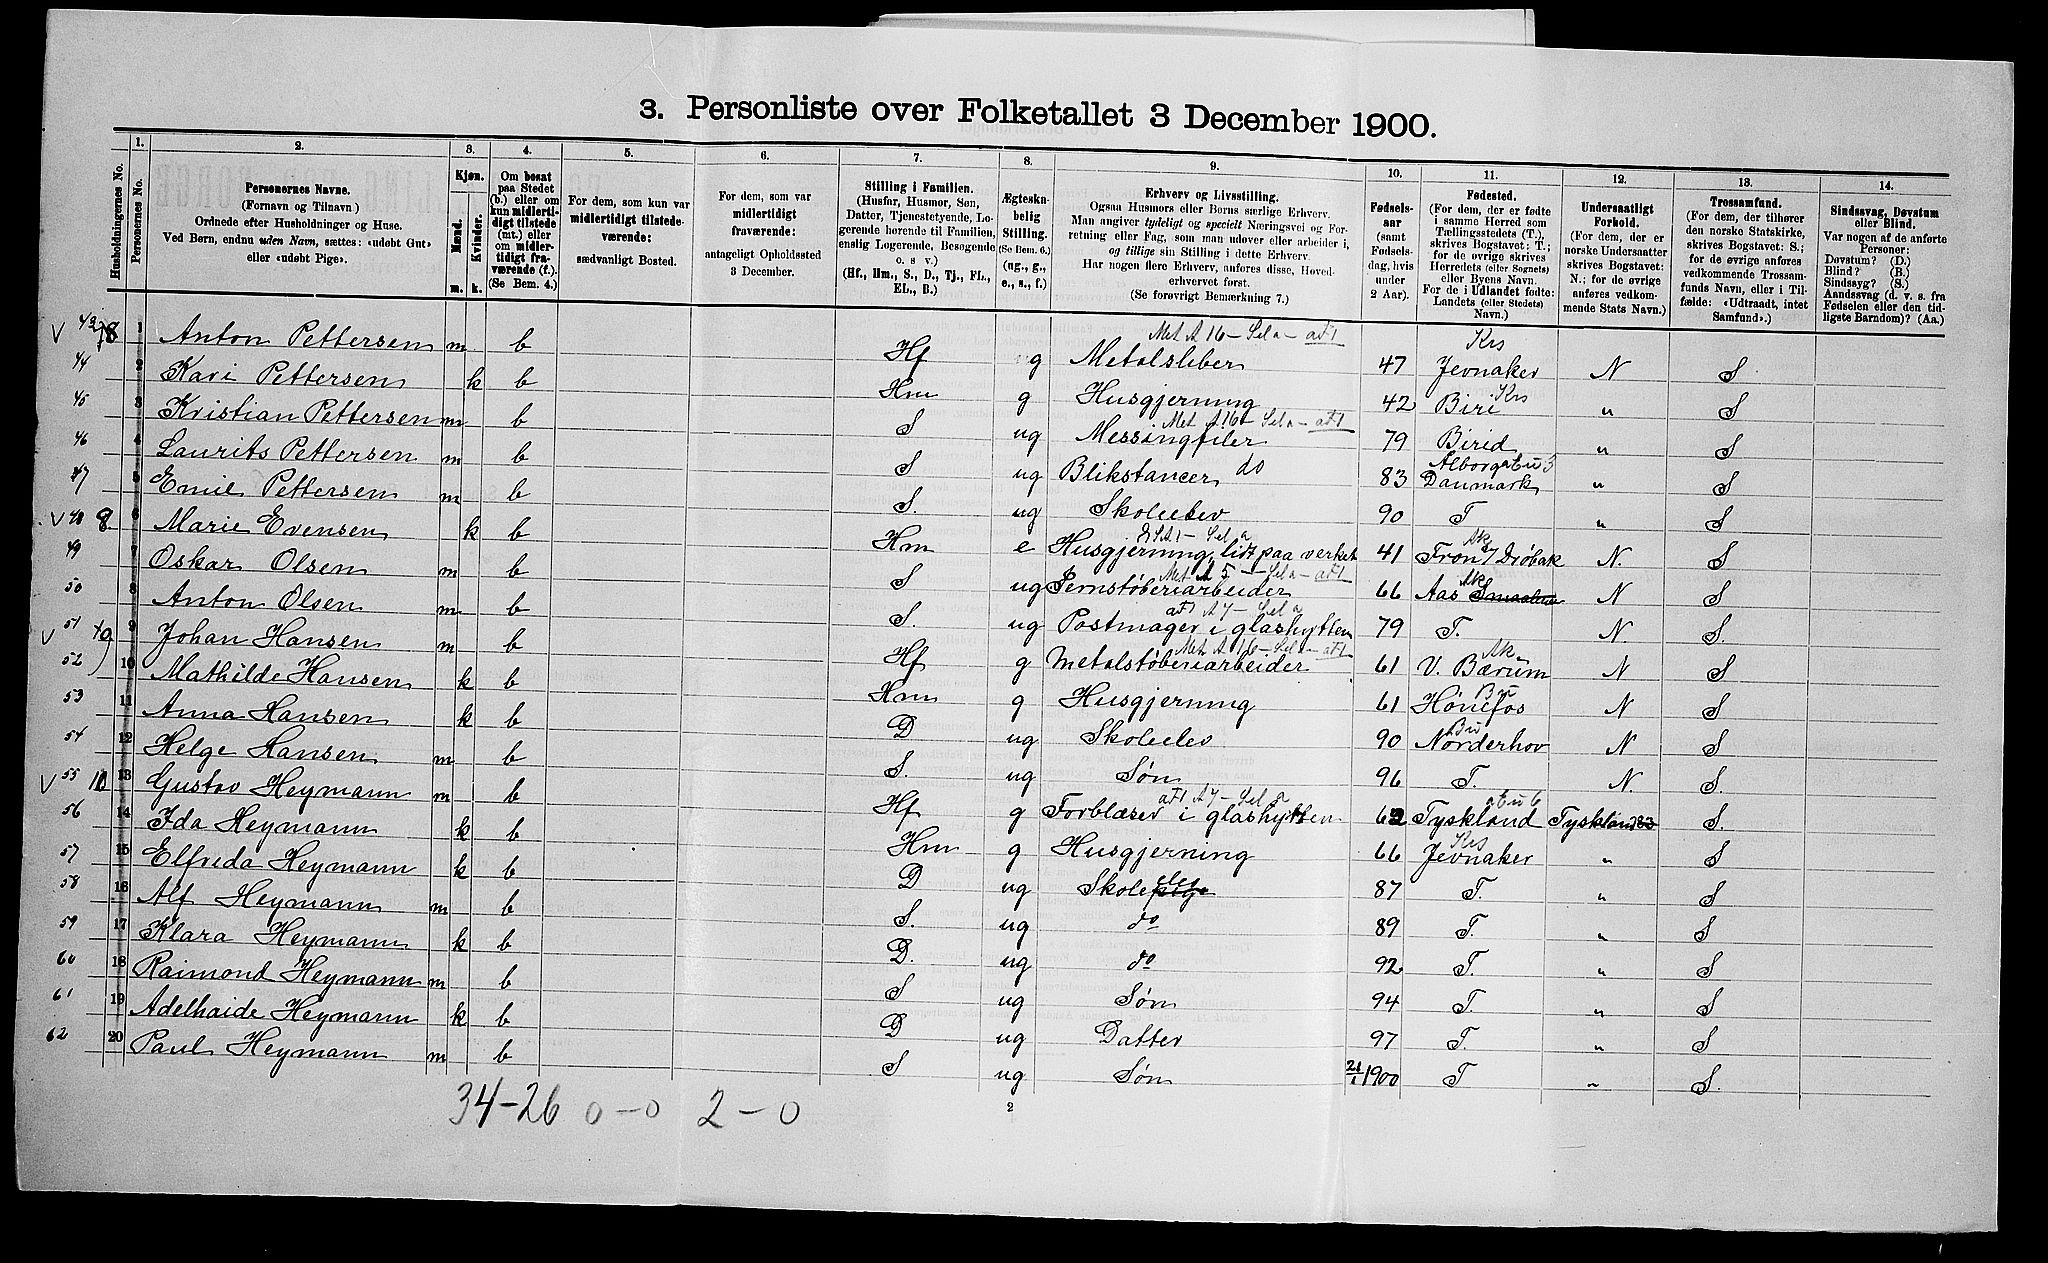 3. Personliste over Folketallet 3 December 1900.
Husholdningernes No.
1. Personernes No.
2. Personernes Navne. (Fornavn og Tilnavn.) Ordnede efter Husholdninger og Huse. Ved Børn, endnu uden Navn, sættes: «udøbt Gut» eller «udøbt Pige».
3. Kjøn. Mænd. m. Kvinder. k.
4. Om bosat paa Stedet (b.) eller om kun midlertidigt tilstede (mt.) eller om midlertidigt fraværende (f.). (Se Bem. 4.)
5. For dem, som kun var midlertidigt tilstedeværende: sædvanligt Bosted.
6. For dem, som var midlertidigt fraværende: antageligt Opholdssted 3 December.
7. Stilling i Familien. (Husfar, Husmor, Søn, Datter, Tjenestetyende, Logerende hørende til Familien, enslig Logerende, Besøgende o. s v.) (Hf., Hm., S., D., Tj., FL., EL., B.)
8. Ægteskabelig Stilling. (Se Bem. 6.) (ug., g., e., s., f.)
9. Erhverv og Livsstilling. Ogsaa Husmors eller Børns særlige Erhverv. Man angiver tydeligt og specielt Næringsvei og Forretning eller Fag, som man udøver eller arbeider i, og tillige sin Stilling i dette Erhverv. Har nogen flere Erhverv, anføres disse, Hovederhvervet først. (Se forøvrigt Bemærkning 7.)
10. Fødselsaar (samt Fødselsdag, hvis under 2 Aar).
11. Fødested. (For dem, der er fødte i samme Herred som Tællingsstedets (T.), skrives Bogstavet: T.; for de øvrige skrives Herredets (eller Sognets) eller Byens Navn. For de i Udlandet fødte: Landets (eller Stedets) Navn.)
12. Undersaatligt Forhold. (For dem, der er norske Undersaatter skrives Bogstavet: N.; for de øvrige anføres vedkommende Stats Navn.)
13. Trossamfund. (For dem, der tilhører den norske Statskirke, skrives Bogstavet: S.; for de øvrige anføres vedkommende Trossamfunds Navn, eller i Tilfælde: «Udtraadt, intet Samfund».)
14. Sindssvag, Døvstum eller Blind. Var nogen af de anførte Personer: Døvstum? (D.) Blind? (B.) Sindssyg? (S.) Aandssvag (d. v. s. fra Fødselen eller den tidligste Barndom)? (Aa.)
v 43 8 1 Anton Pettersen m b Hf ug Metalsleber Met A 16 – Sel a – aF1 47 Jevnaker Krs N S
44 2 Kari Pettersen k b Hm g Husgjerning 42 Biri Krs „ S
45 3 Kristian Pettersen m b S ug Messingfiler Met A 16 – Sel a – aF1 79 Birid „ S
46 4 Laurits Pettersen m b S ug Blikstancer do 83 Alborg Danmark „ S
47 5 Emil Pettersen m b S. ug Skoleelev 90 T „ S
v 48 8 6 Marie Evensen k b Hm e Husgjerning, lidt paa verket 41 Fron / Drøbak Ak N. S
49 7 Oskar Olsen m b S ug Jernstøberiarbeider Met A 5 – Sel a – aF1 66 Aas Smaalene Ak N S
50 8 Anton Olsen m b S. ug Postmager i glashytten aF1 A 7 – Sel a 79 T. N. S.
v 51 9 9 Johan Hansen m b Hf g Metalstøberiarbeider Met A 16 – Sel a – aF1 61 V. Bærum Ak N S
52 10 Mathilde Hansen k b Hm g Husgjerning 61 Hønefos Bu N S
53 11 Anna Hansen k b D ug Skoleelev 90 Norderhov Bu N S
54 12 Helge Hansen m b S. ug Søn 96 T. N. S.
v 55 10 13 Gustav Heymann m b Hf g Forblæser i glashytten aF1 A 7 – Sel a 62 Tyskland Tyskland S.
56 14 Ida Heymann k b Hm g Husgjerning 66 Jevnaker Krs „ S
57 15 Elfreda Heymann k b D ug Skoleelev 87 T. „ S
58 16 Alf Heymann m b S. ug do 89 T. „ S
59 17 Klara Heymann k b D. ug do 92 T. „ S
60 18 Raimond Heymann m b S ug Søn 94 T. „ S
61 19 Adelhaide Heymann k b D ug Datter 97 T. „ S
62 20 Paul Heymann m b S ug Søn 21/1 1900 T „ S.
34–26 0–0 2–0
2